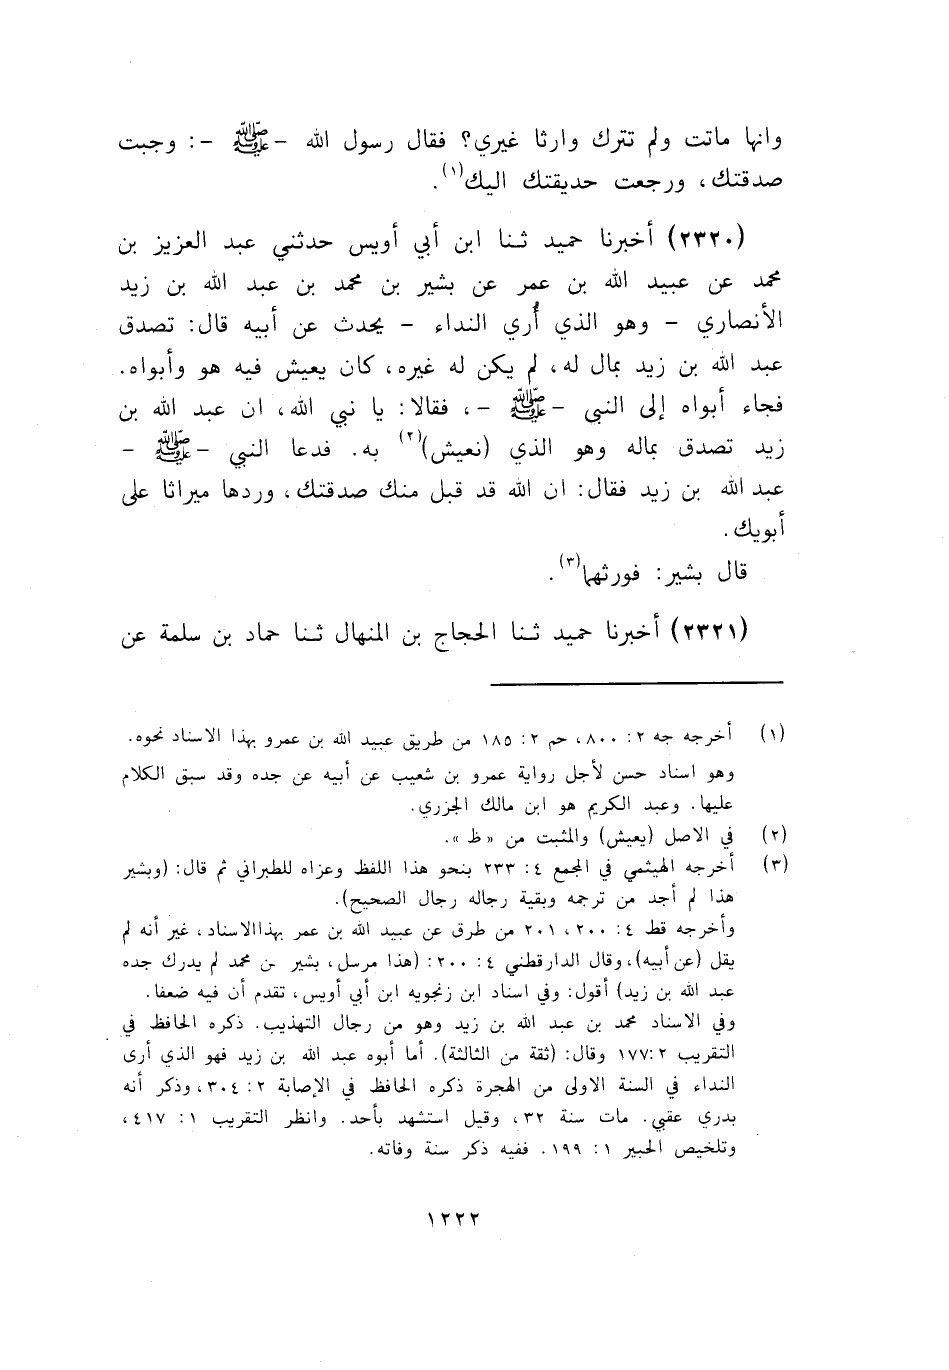 وانها ماتت ولم تترك وارثا غيري؟ فقال رسول الله - ﷺ - : وجبت
صدقتك، ورجعت حديقتك اليك(١).
(٢٣٢٠) أخبرنا حميد ثنا ابن أبي أويس حدثني عبد العزيز بن
محمد عن عبيد الله بن عمر عن بشير بن محمد بن عبد الله بن زيد
الأنصاري - وهو الذي أُري النداء - يحدث عن أبيه قال: تصدق
عبد الله بن زيد بمال له، لم يكن له غيره، كان يعيش فيه هو وأبواه.
فجاء أبواه إلى النبي - ﷺ - ، فقالا: يا نبي الله، ان عبد الله بن
زيد تصدق بماله وهو الذي (نعيش)(٢) به. فدعا النبي - ﷺ -
عبد الله بن زيد فقال: ان الله قد قبل منك صدقتك، وردها ميراثا على
أبويك.
قال بشير: فورثهما(٣).
(٢٣٢١) أخبرنا حميد ثنا الحجاج بن المنهال ثنا حماد بن سلمة عن
(١) أخرجه جه ٢: ٨٠٠، حم ٢: ١٨٥ من طريق عبيد الله بن عمرو بهذا الاسناد نحوه.
وهو اسناد حسن لأجل رواية عمرو بن شعيب عن أبيه عن جده وقد سبق الكلام
عليها. وعبد الكريم هو ابن مالك الجزري.
(٢) في الاصل (يعيش) والمثبت من «ظ».
(٣) أخرجه الهيثمي في المجمع ٤: ٢٣٣ بنحو هذا اللفظ وعزاه للطبراني ثم قال: (وبشير
هذا لم أجد من ترجمه وبقية رجاله رجال الصحيح).
وأخرجه قط ٤: ٢٠٠، ٢٠١ من طرق عن عبيد الله بن عمر بهذا الاسناد، غير أنه لم
يقل (عن أبيه)، وقال الدارقطني ٤: ٢٠٠: (هذا مرسل، بشير بن محمد لم يدرك جده
عبد الله بن زيد) أقول: وفي اسناد ابن زنجويه ابن أبي أويس، تقدم أن فيه ضعفا.
وفي الاسناد محمد بن عبد الله بن زيد وهو من رجال التهذيب. ذكره الحافظ في
التقريب ٢: ١٧٧ وقال: (ثقة من الثالثة). أما أبوه عبد الله بن زيد فهو الذي أرى
النداء في السنة الاولى من الهجرة ذكره الحافظ في الإصابة ٢: ٣٠٤، وذكر أنه
بدري عقبي. مات سنة ٣٢، وقيل استشهد بأحد. وانظر التقريب ١: ٤١٧،
وتلخيص الحبير ١: ١٩٩. ففيه ذكر سنة وفاته.
١٢٢٢